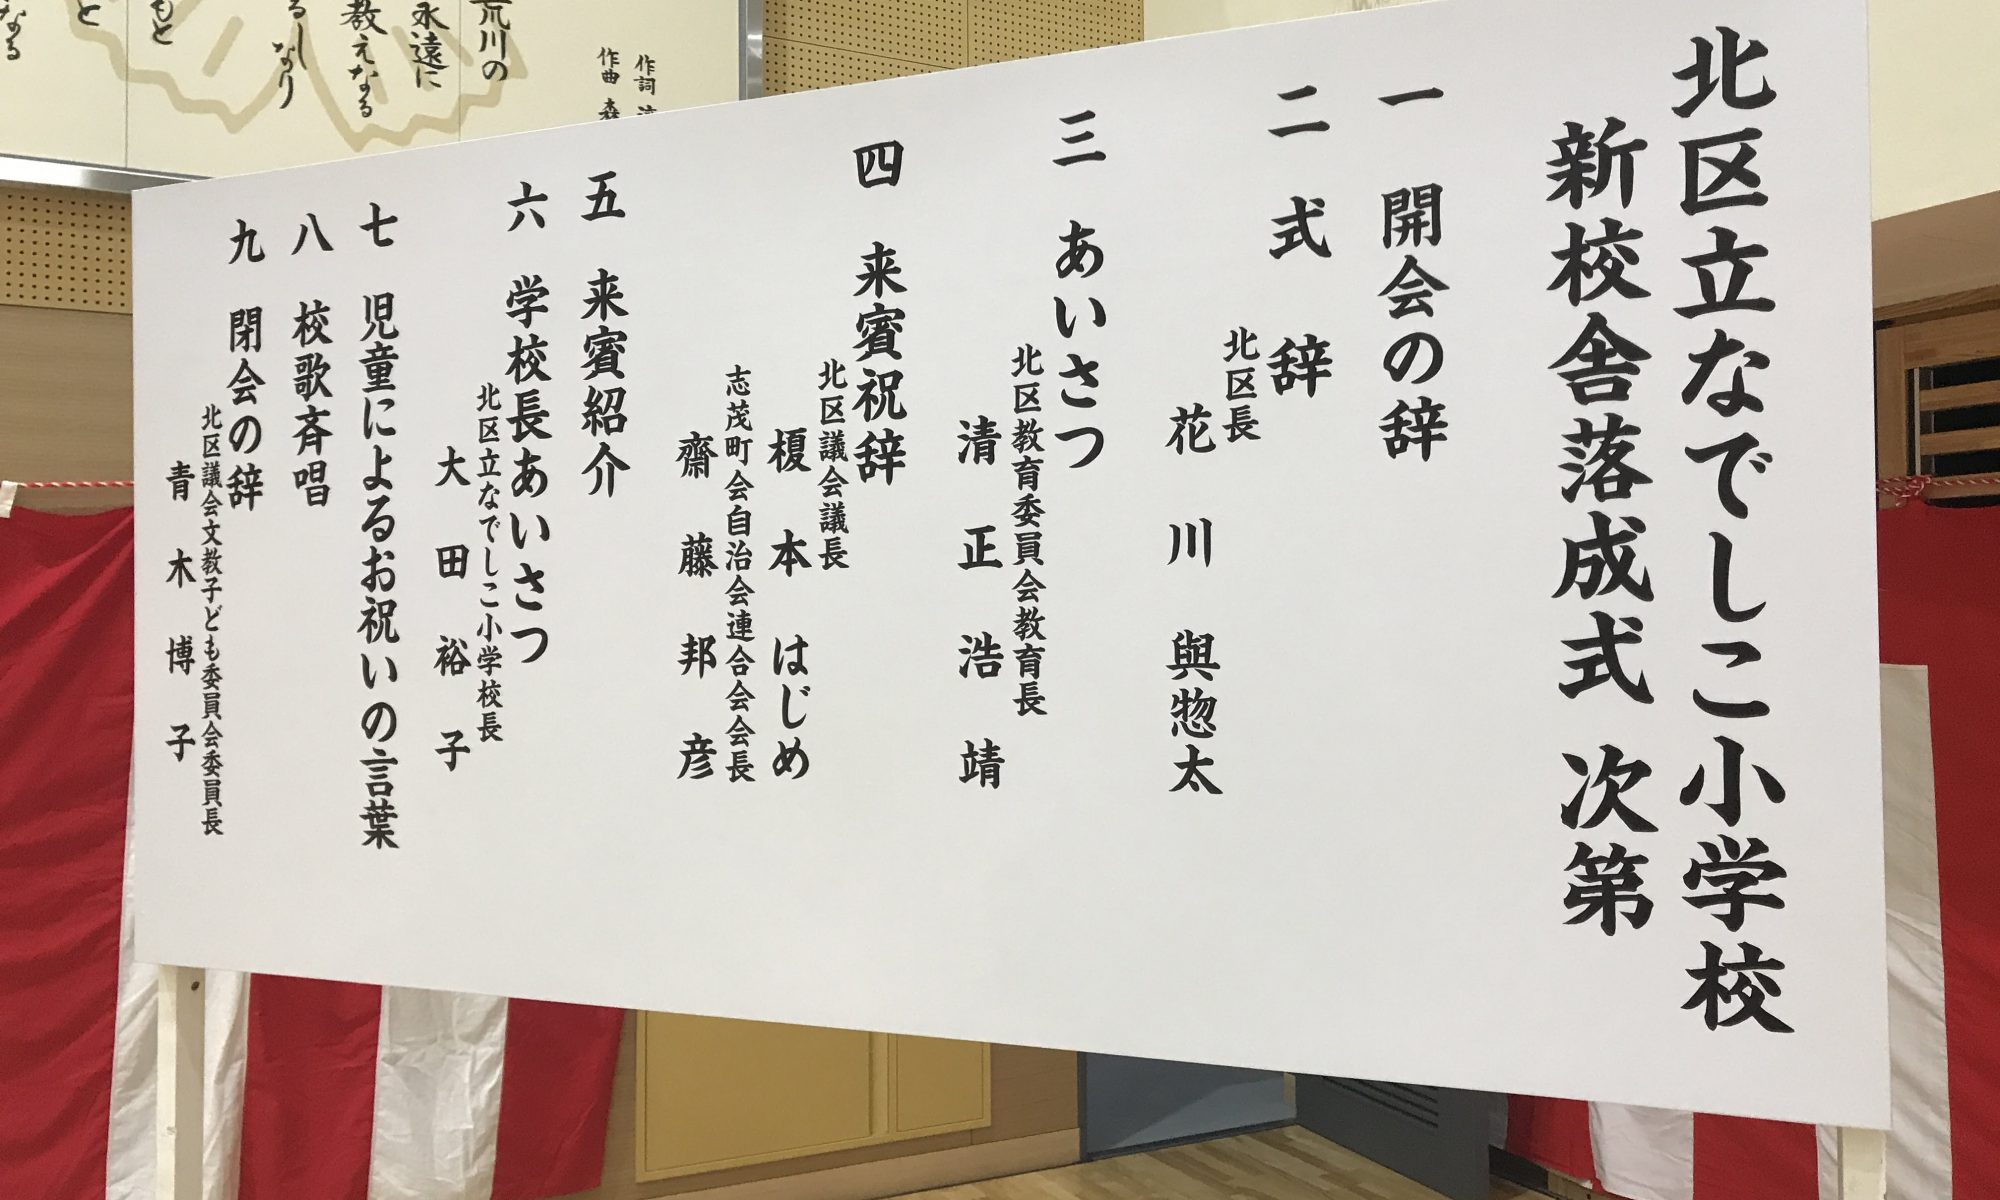 北区立なでしこ小学校
新校舎落成式 次第
一 開会の辞
二 式 辞
北区長
花 川 與惣太
三 あいさつ
北区教育委員会教育長
清 正 浩 靖
四 来賓祝辞
北区議会議長
榎 本 はじめ
志茂町会自治会連合会会長
齋 藤 邦 彦
五 来賓紹介
六 学校長あいさつ
北区立なでしこ小学校長
大 田 裕 子
七 児童によるお祝いの言葉
八 校歌斉唱
九 閉会の辞
北区議会文教子ども委員会委員長
青 木 博 子
作詞
作曲 森
荒川の
永遠に
教えなる
るしなり
もと
と
なる